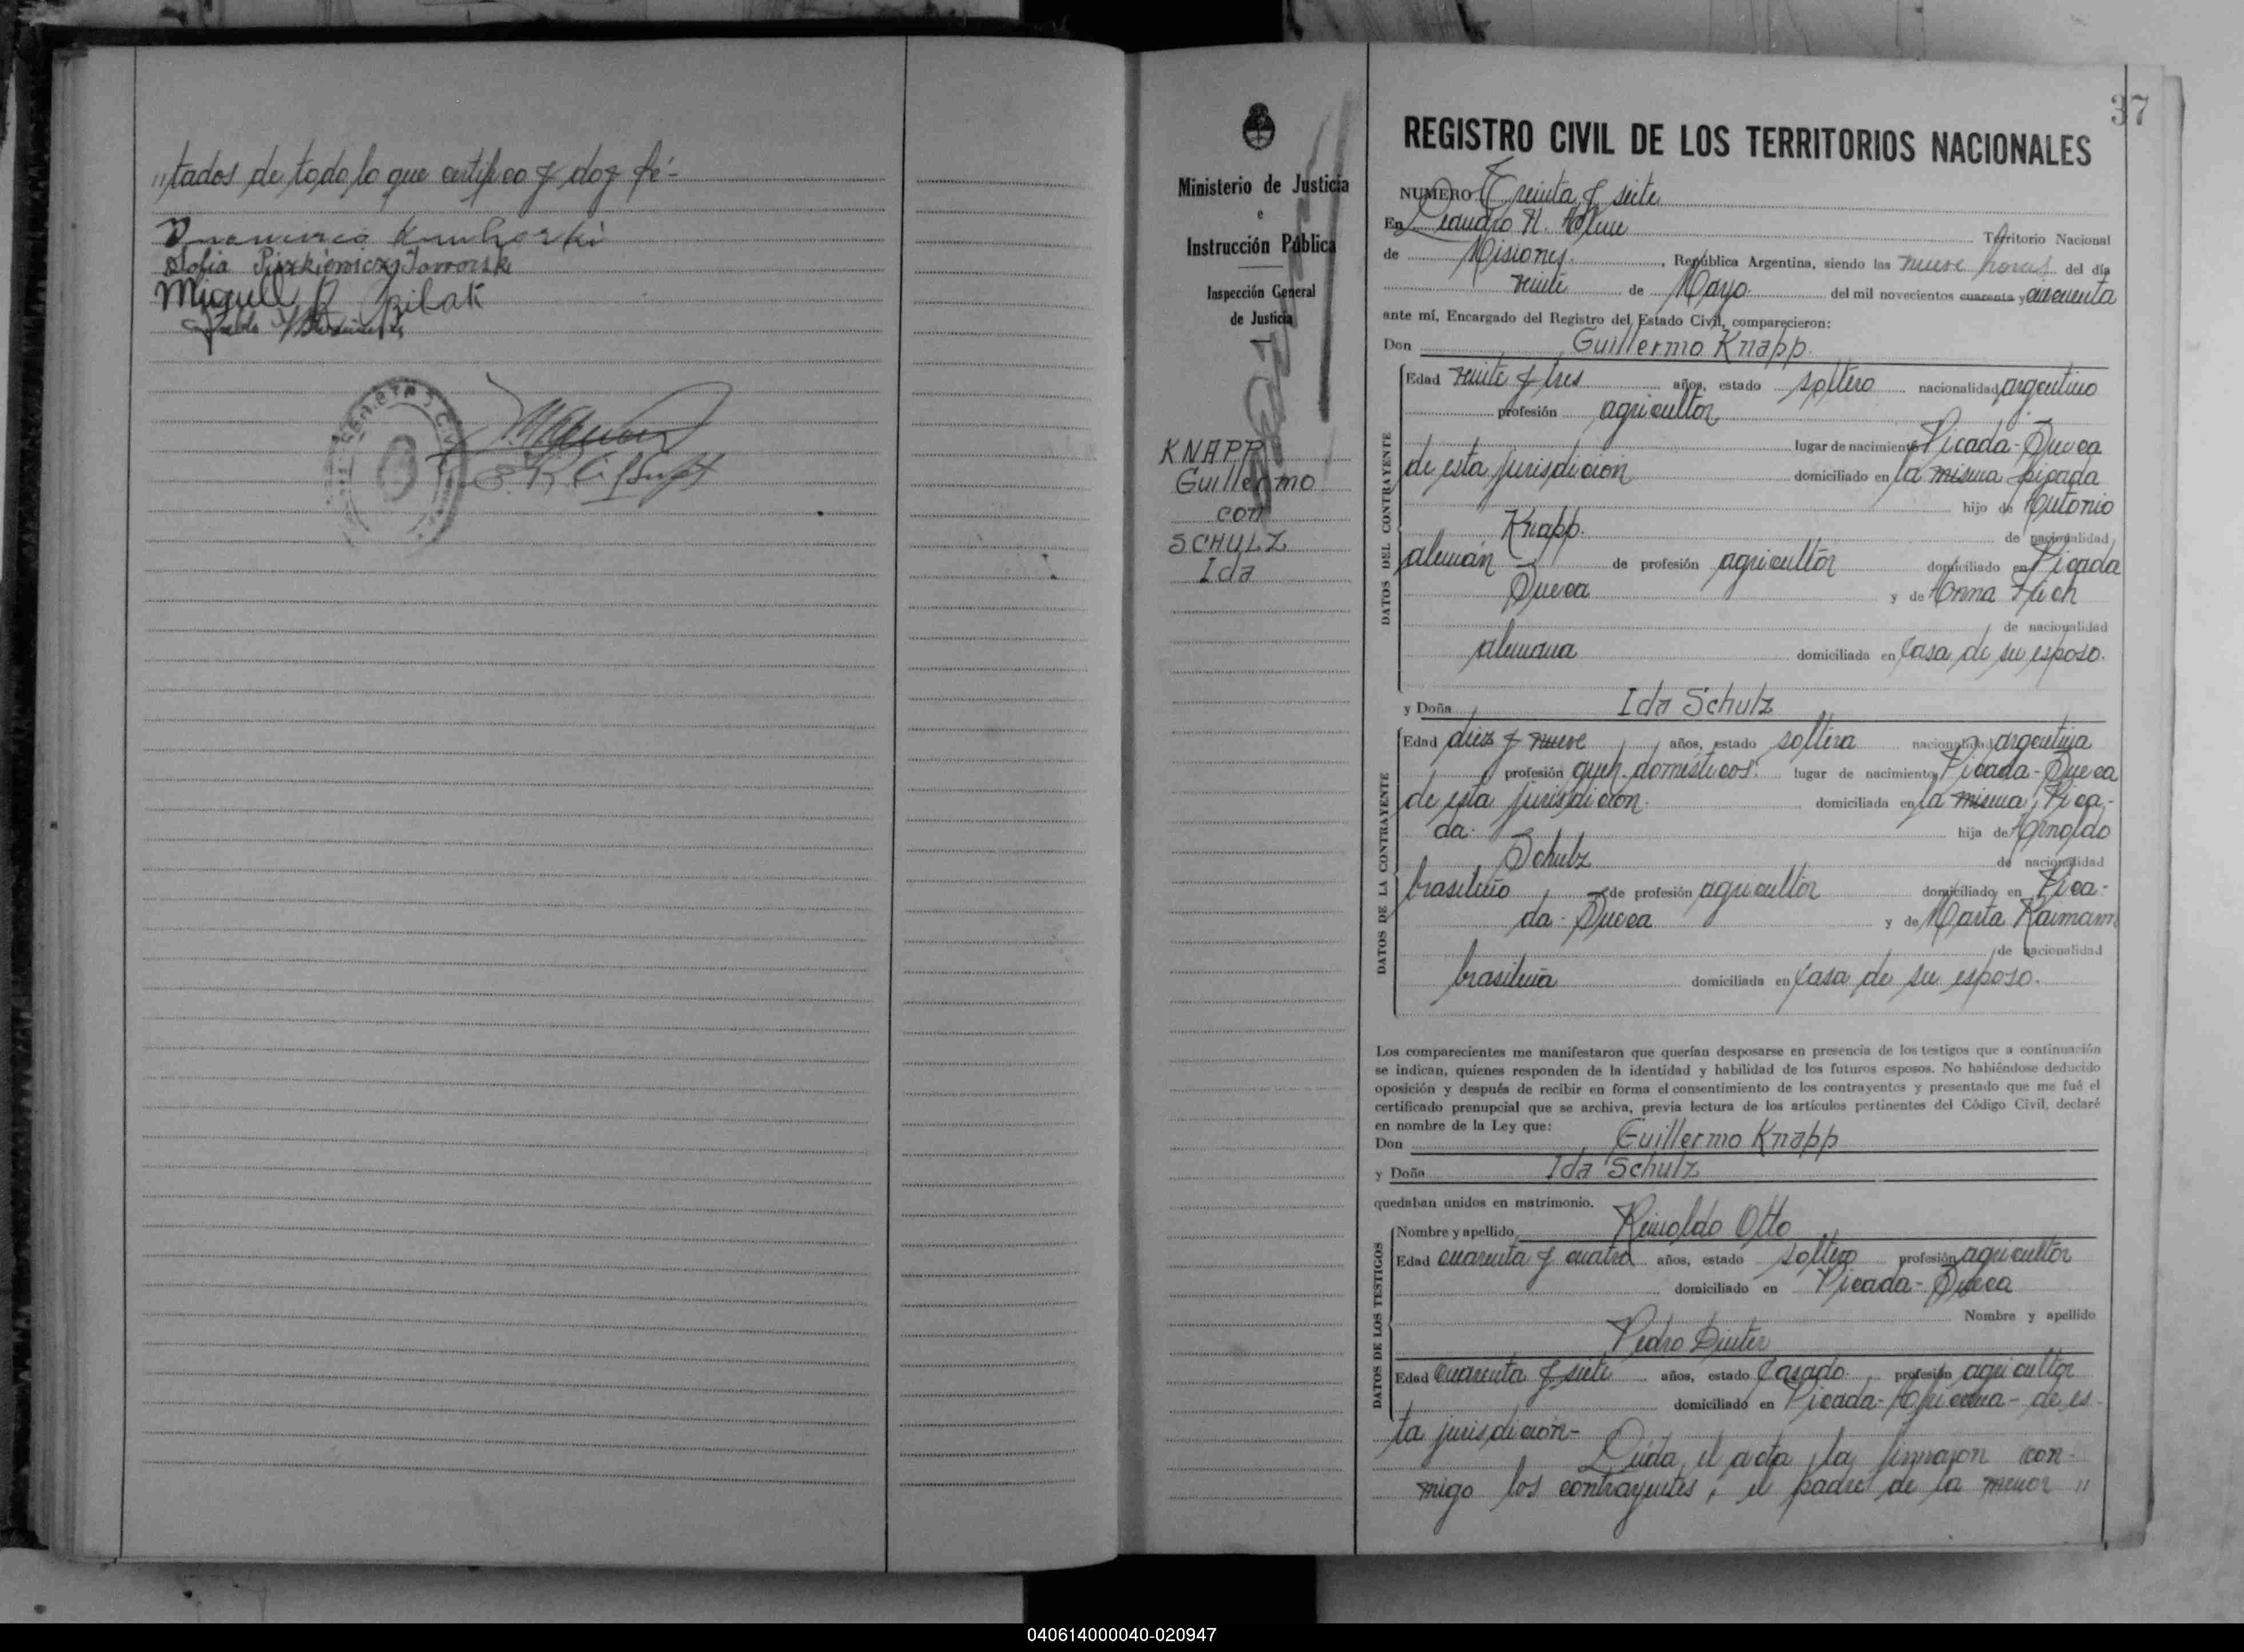 "tados de todo lo que certifico y doy fé-
Sofia
Miguel Pilak
37
Ministerio de Justicia
e
Instrucción Pública
Inspección General
de Justicia
KNAPP
Guillermo
con
SCHULZ
Ida
REGISTRO CIVIL DE LOS TERRITORIOS NACIONALES
NUMERO Treinta y siete
En Leandro N. Alem Territorio Nacional
de Misiones, República Argentina, siendo las nueve horas del día
veinte de Mayo del mil novecientos cuarenta y cincuenta
ante mí, Encargado del Registro del Estado Civil, comparecieron:
Don Guillermo Knapp.
DATOS DEL CONTRAYENTE
Edad veinte y tres años, estado soltero nacionalidad argentino
profesión agricultor
lugar de nacimiento Picada-Sueca
de esta jurisdicion domiciliado en la misma picada
hijo de Antonio
Knapp. de nacionalidad
alemán de profesión agricultor domiciliado en Picada
Sueca y de Anna
de nacionalidad
alemana domiciliada en Casa de su esposo.
y Doña Ida Schulz
DATOS DE LA CONTRAYENTE
Edad diez y nueve años, estado soltera nacionalidad argentina
profesión queh. domésticos. lugar de nacimiento Picada-Sueca
de esta jurisdicion. domiciliada en la misma Pica-
da. hija de Arnoldo
Schulz de nacionalidad
brasileño de profesión agricultor domiciliado en Pica-
da-Sueca y de Marta Raimann
de nacionalidad
brasileña domiciliada en Casa de su esposo.
Los comparecientes me manifestaron que querían desposarse en presencia de los testigos que a continuación
se indican, quienes responden de la identidad y habilidad de los futuros esposos. No habiéndose deducido
oposición y después de recibir en forma el consentimiento de los contrayentes y presentado que me fué el
certificado prenupcial que se archiva, previa lectura de los artículos pertinentes del Código Civil, declaré
en nombre de la Ley que:
Don Guillermo Knapp
y Doña Ida Schulz
quedaban unidos en matrimonio.
DATOS DE LOS TESTIGOS
Nombre y apellido Reinoldo Otto
Edad cuarenta y cuatro años, estado soltero profesión agricultor
domiciliado en Picada-Sueca
Nombre y apellido
Pedro
Edad cuarenta y siete años, estado Casado profesión agricultor
domiciliado en Picada- -de es-
ta jurisdicion-
Leida el acta, la firmaron con-
migo los contrayentes, el padre de la menor "
040614000040-020947